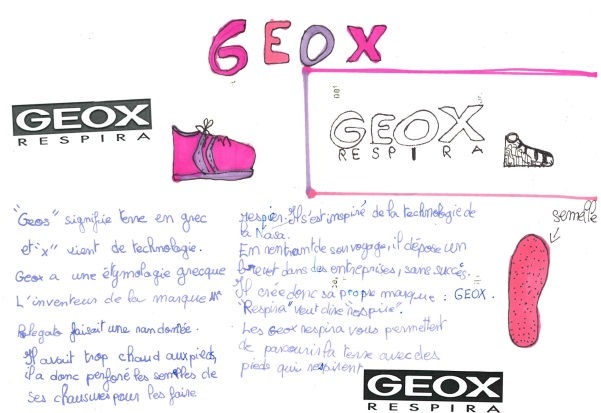 GEOX
GEOX
RESPIRA
GEOX
RESPIRA
"Geos" signifie terre en grec
et "x" vient de technologie.
Geox a une étymologie grecque
L'inventeur de la marque Mr
Polegato faisait une randonnée.
Il avait trop chaud aux pieds,
il a donc perforé les semelles de
ses chaussures pour les faire
respirer. Il s'est inspiré de la technologie de
la Nasa.
En rentrant de son voyage, il dépose un
brevet dans des entreprises, sans succès.
Il crée donc sa propre marque : GEOX.
"Respira" veut dire "respire".
Les Geox respira vous permettent
de parcourir la terre avec des
pieds qui respirent
semelle
GEOX
RESPIRA